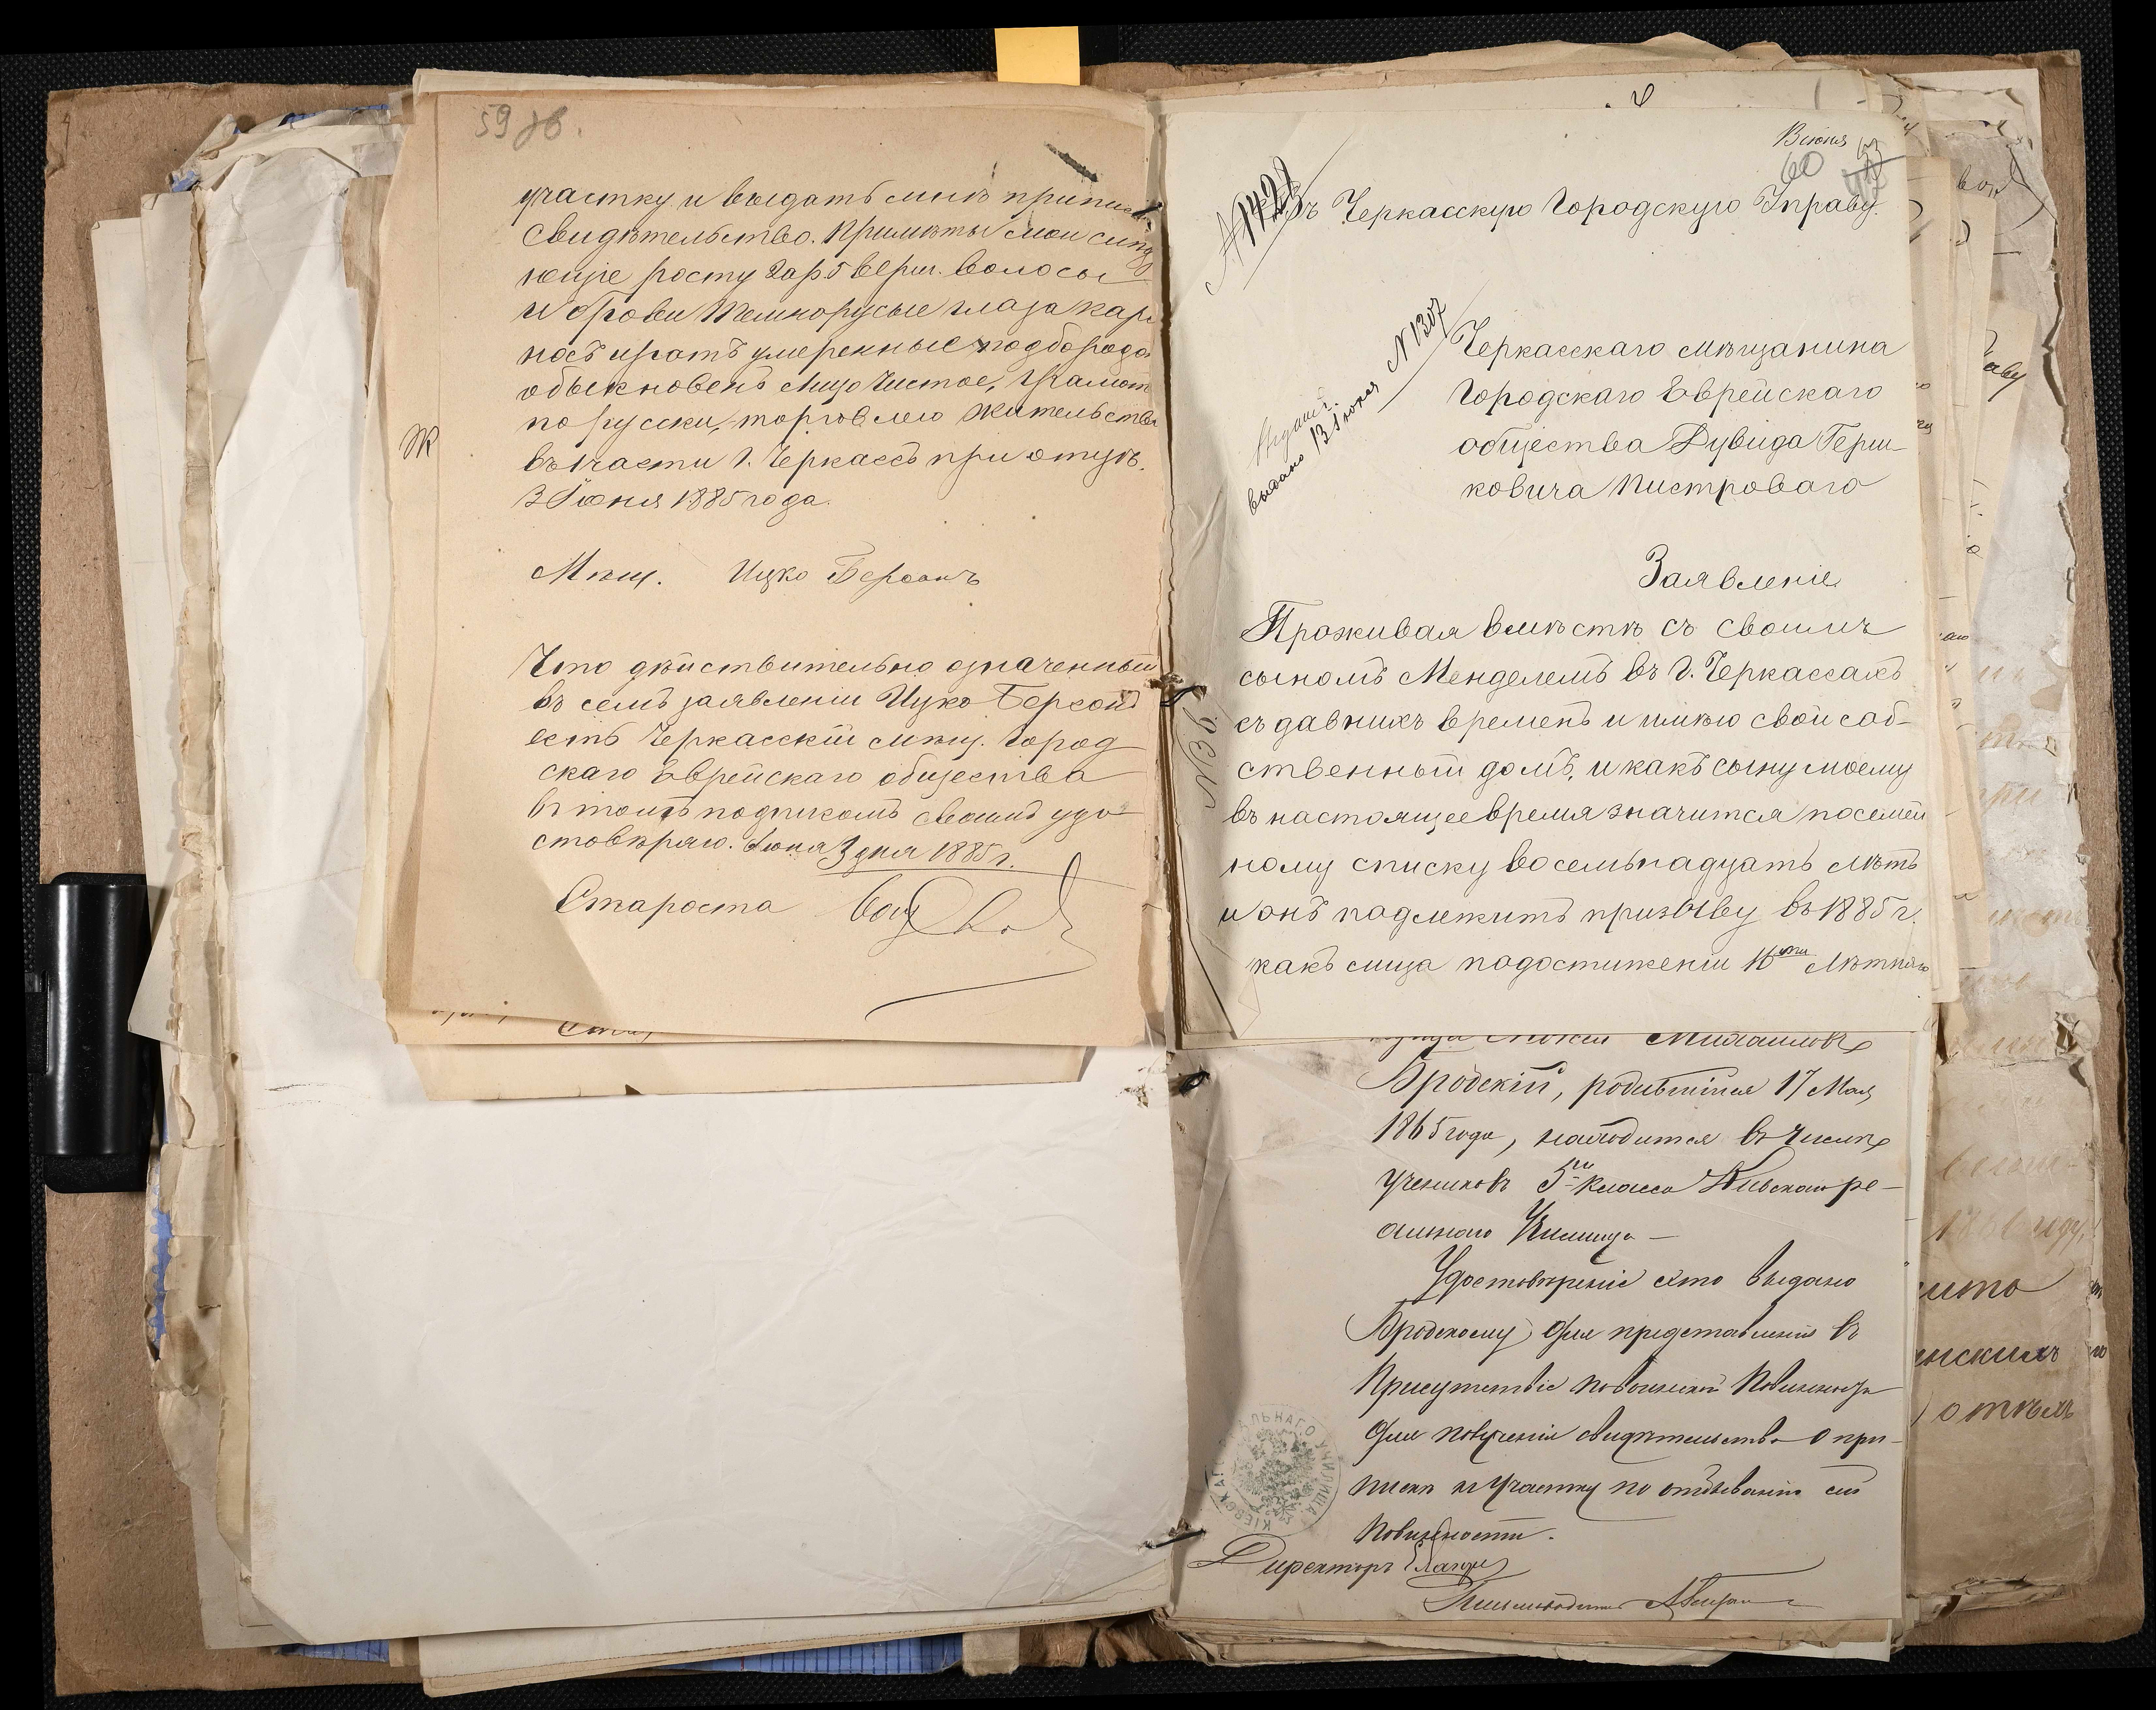 59 об.
участку и выдать мнѣ приписн
свидѣтельство. Примѣты мои слѣду
ющіе росту 2 ар 5 верш. волосы
и брови темнорусые глаза кар
носъ и ротъ умеренные подбородо
обыкновенъ лицо чистое, грамотн
по русски, торговлею жительство
въ части г. Черкассъ при отцѣ.
3 Іюня 1885 года.
Мѣщ. Ицко Берсонъ
Что дѣйствительно означенный
въ семъ заявленіи Ицко Берсонъ
есть Черкасскій мѣщ. город
скаго Еврейскаго общества
въ томъ подписомъ своимъ удо
стовѣряю. Іюня 3 дня 1885 г.
Староста
В іюня
60
№ 1428
Въ Черкасскую Городскую Управу.
выдано 13 Іюня № 1307
Черкасскаго мѣщанина
Городскаго Еврейскаго
общества Дувида Герш-
ковича Пистроваго
Заявленіе
Проживая вмѣстѣ съ своимъ
сыномъ Менделемъ въ г. Черкассахъ
съ давнихъ временъ и имѣю свой соб-
ственный домъ, и какъ сыну моему
въ настоящее время значится по семей
ному списку восемьнадцать лѣтъ
и онъ подлежитъ призыву въ 1885 г.
какъ лица по достиженіи 16ти лѣтняго
Михаиловъ
Бродскій, родившійся 17 Мая
1865 года, находится въ числѣ
учениковъ 5го класса Кіевскаго ре-
альнаго Училища —
Удостовѣреніе сіе выдано
Бродскому для представленія въ
Присутствіе по воинской Повинности
для полученія свидѣтельства о при-
пискѣ къ участку по отбыванію сей
Повинности.
КІЕВСКАГО РЕАЛЬНАГО УЧИЛИЩА
Директоръ
Письмоводитель